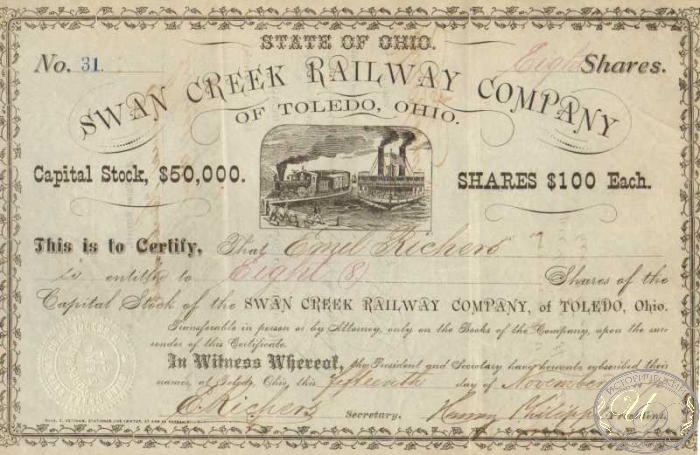 STATE OF OHIO.
No. 31. Eight Shares.
SWAN CREEK RAILWAY COMPANY
OF TOLEDO, OHIO.
Capital Stock, $50,000. SHARES $100 Each.
This is to Certify, That Emil Richers
is entitled to Eight (8) Shares of the
Capital Stock of the SWAN CREEK RAILWAY COMPANY, of TOLEDO, Ohio.
Transferable in person or by Attorney, only on the Books of the Company, upon the surrender of this Certificate.
In Witness Whereof, the President and Secretary have hereunto subscribed their
names, at Toledo, Ohio, this fifteenth day of November
E Richers Secretary. Henry Philipps President.